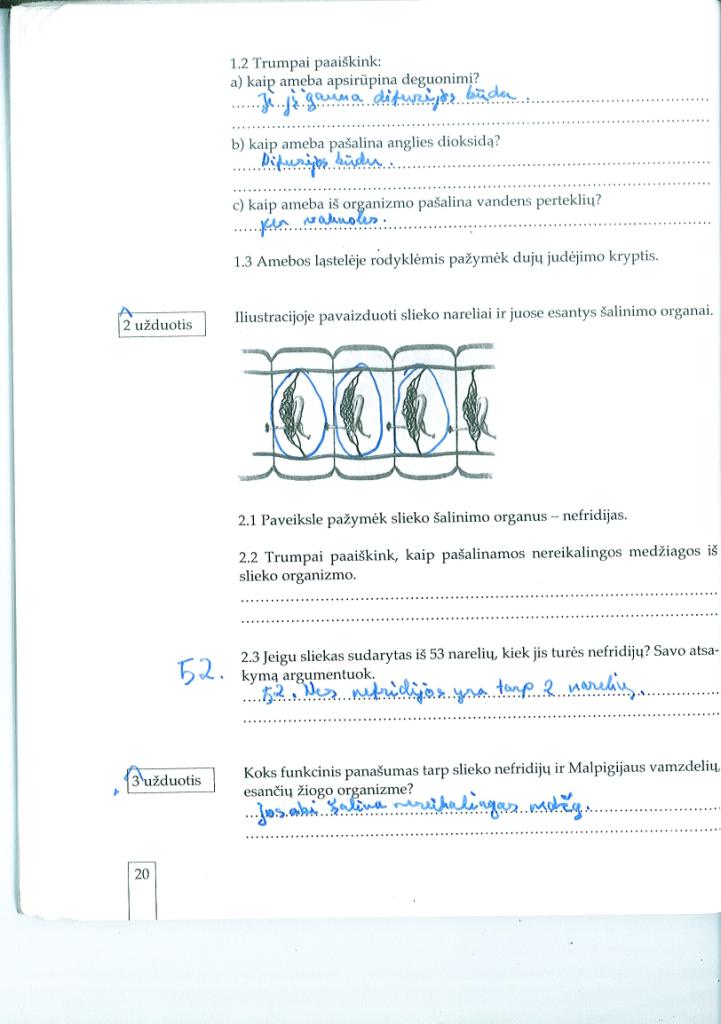 1.2 Trumpai paaiškink:
a) kaip ameba apsirūpina deguonimi?
Ji jį gauna difuzijos būdu.
b) kaip ameba pašalina anglies dioksidą?
Difuzijos būdu.
c) kaip ameba iš organizmo pašalina vandens perteklių?
per vakuoles.
1.3 Amebos ląstelėje rodyklėmis pažymėk dujų judėjimo kryptis.
2 užduotis
Iliustracijoje pavaizduoti slieko nareliai ir juose esantys šalinimo organai.
2.1 Paveiksle pažymėk slieko šalinimo organus – nefridijas.
2.2 Trumpai paaiškink, kaip pašalinamos nereikalingos medžiagos iš
slieko organizmo.
2.3 Jeigu sliekas sudarytas iš 53 narelių, kiek jis turės nefridijų? Savo atsa-
52. kymą argumentuok.
52. Nes nefridijos yra tarp 2 narelių.
3 užduotis
Koks funkcinis panašumas tarp slieko nefridijų ir Malpigijaus vamzdelių,
esančių žiogo organizme?
Jos abi šalina nereikalingas medžg.
20